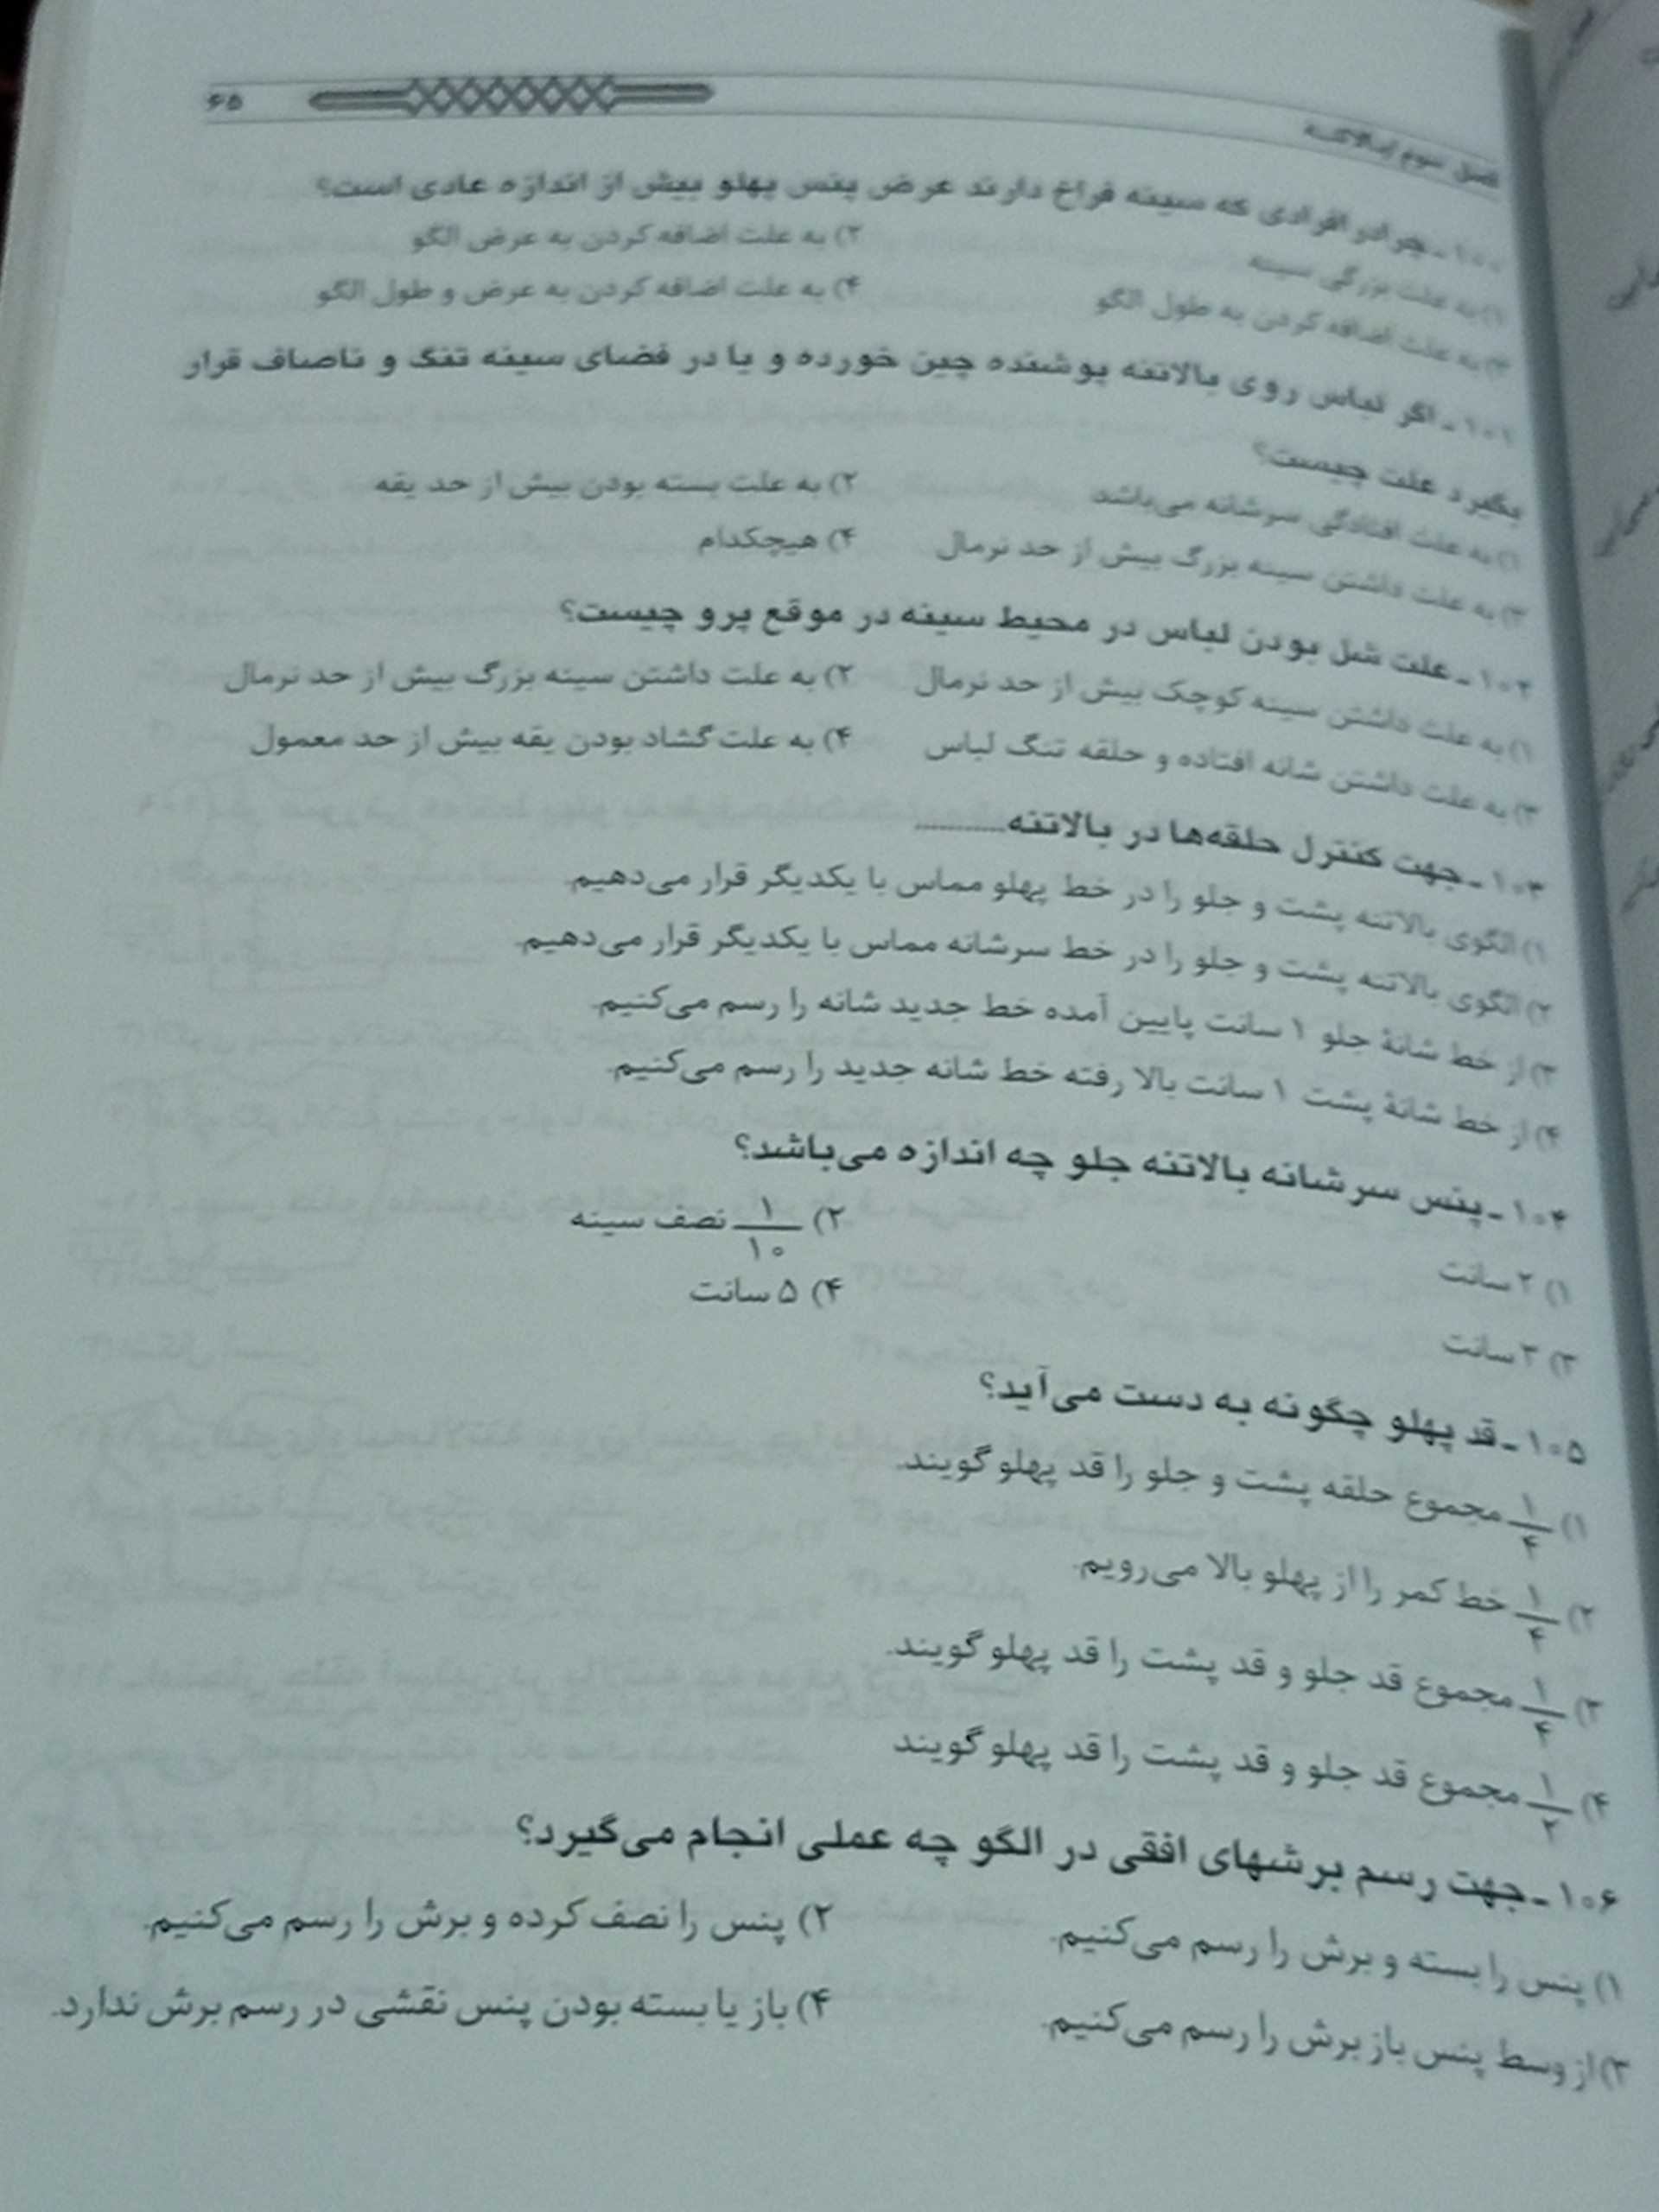 فصل سوم / بالاتنه
۶۵
۱۰۰ـ چرا در افرادی که سینه فراخ دارند عرض پنس پهلو بیش از اندازه عادی است؟
۱) به علت بزرگی سینه ۲) به علت اضافه کردن به عرض الگو
۳) به علت اضافه کردن به طول الگو ۴) به علت اضافه کردن به عرض و طول الگو
۱۰۱ـ اگر لباس روی بالاتنه پوشنده چین خورده و یا در فضای سینه تنگ و ناصاف قرار
بگیرد علت چیست؟
۱) به علت افتادگی سرشانه می‌باشد ۲) به علت بسته بودن بیش از حد یقه
۳) به علت داشتن سینه بزرگ بیش از حد نرمال ۴) هیچکدام
۱۰۲ـ علت شل بودن لباس در محیط سینه در موقع پرو چیست؟
۱) به علت داشتن سینه کوچک بیش از حد نرمال ۲) به علت داشتن سینه بزرگ بیش از حد نرمال
۳) به علت داشتن شانه افتاده و حلقه تنگ لباس ۴) به علت گشاد بودن یقه بیش از حد معمول
۱۰۳ـ جهت کنترل حلقه‌ها در بالاتنه...........
۱) الگوی بالاتنه پشت و جلو را در خط پهلو مماس با یکدیگر قرار می‌دهیم.
۲) الگوی بالاتنه پشت و جلو را در خط سرشانه مماس با یکدیگر قرار می‌دهیم.
۳) از خط شانۀ جلو ۱ سانت پایین آمده خط جدید شانه را رسم می‌کنیم.
۴) از خط شانۀ پشت ۱ سانت بالا رفته خط شانه جدید را رسم می‌کنیم.
۱۰۴ـ پنس سرشانه بالاتنه جلو چه اندازه می‌باشد؟
۱) ۲ سانت ۲) ۱/۱۰ نصف سینه
۳) ۳ سانت ۴) ۵ سانت
۱۰۵ـ قد پهلو چگونه به دست می‌آید؟
۱) ۱/۴ مجموع حلقه پشت و جلو را قد پهلو گویند.
۲) ۱/۴ خط کمر را از پهلو بالا می‌رویم.
۳) ۱/۴ مجموع قد جلو و قد پشت را قد پهلو گویند.
۴) ۱/۲ مجموع قد جلو و قد پشت را قد پهلو گویند
۱۰۶ـ جهت رسم برشهای افقی در الگو چه عملی انجام می‌گیرد؟
۱) پنس را بسته و برش را رسم می‌کنیم. ۲) پنس را نصف کرده و برش را رسم می‌کنیم.
۳) از وسط پنس باز برش را رسم می‌کنیم. ۴) باز یا بسته بودن پنس نقشی در رسم برش ندارد.